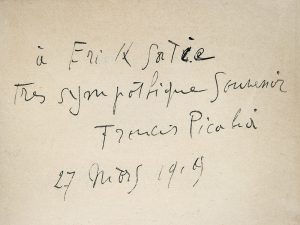 à Erik Satie
Très sympathique Souvenir
Francis Picabia
27 Mars 1919